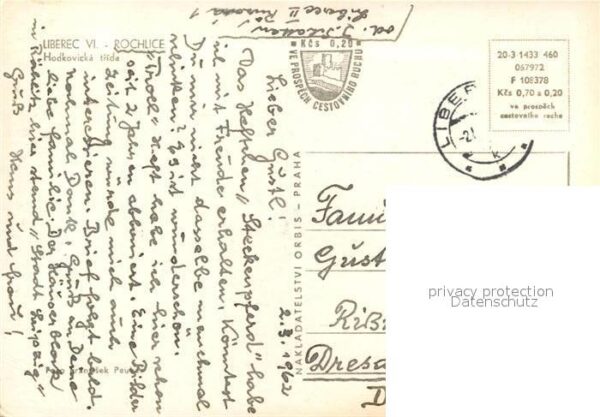 LIBEREC VI. - ROCHLICE
Hodkovická třída
Liberec II
Kčs 0,20
VE PROSPĚCH CESTOVNÍHO RUCHU
20-3 1433 460
067972
F 108378
Kčs 0,70 a 0,20
ve prospěch
cestovního ruchu
LIBER
NAKLADATELSTVÍ ORBIS - PRAHA
2.3.1962
Lieber Gustl!
Das Heftchen „Steckenpferd" habe
ich mit Freude erhalten. Könntest
Du mir nicht dasselbe manchmal
schicken? Es ist wunderschön.
hier schon
seit 2 Jahren abboniert. Eine Bilder
Zeitung würde mich auch
interessieren. Brief folgt bald.
Nochmal Dank, Grüß an Deine
liebe Familie. Der Häuserblock
in Röchlitz hier stand „Stadt Leipzig"
Gruß Hans und Frau!
Fami
Gust
Dresd
D
privacy protection
Datenschutz